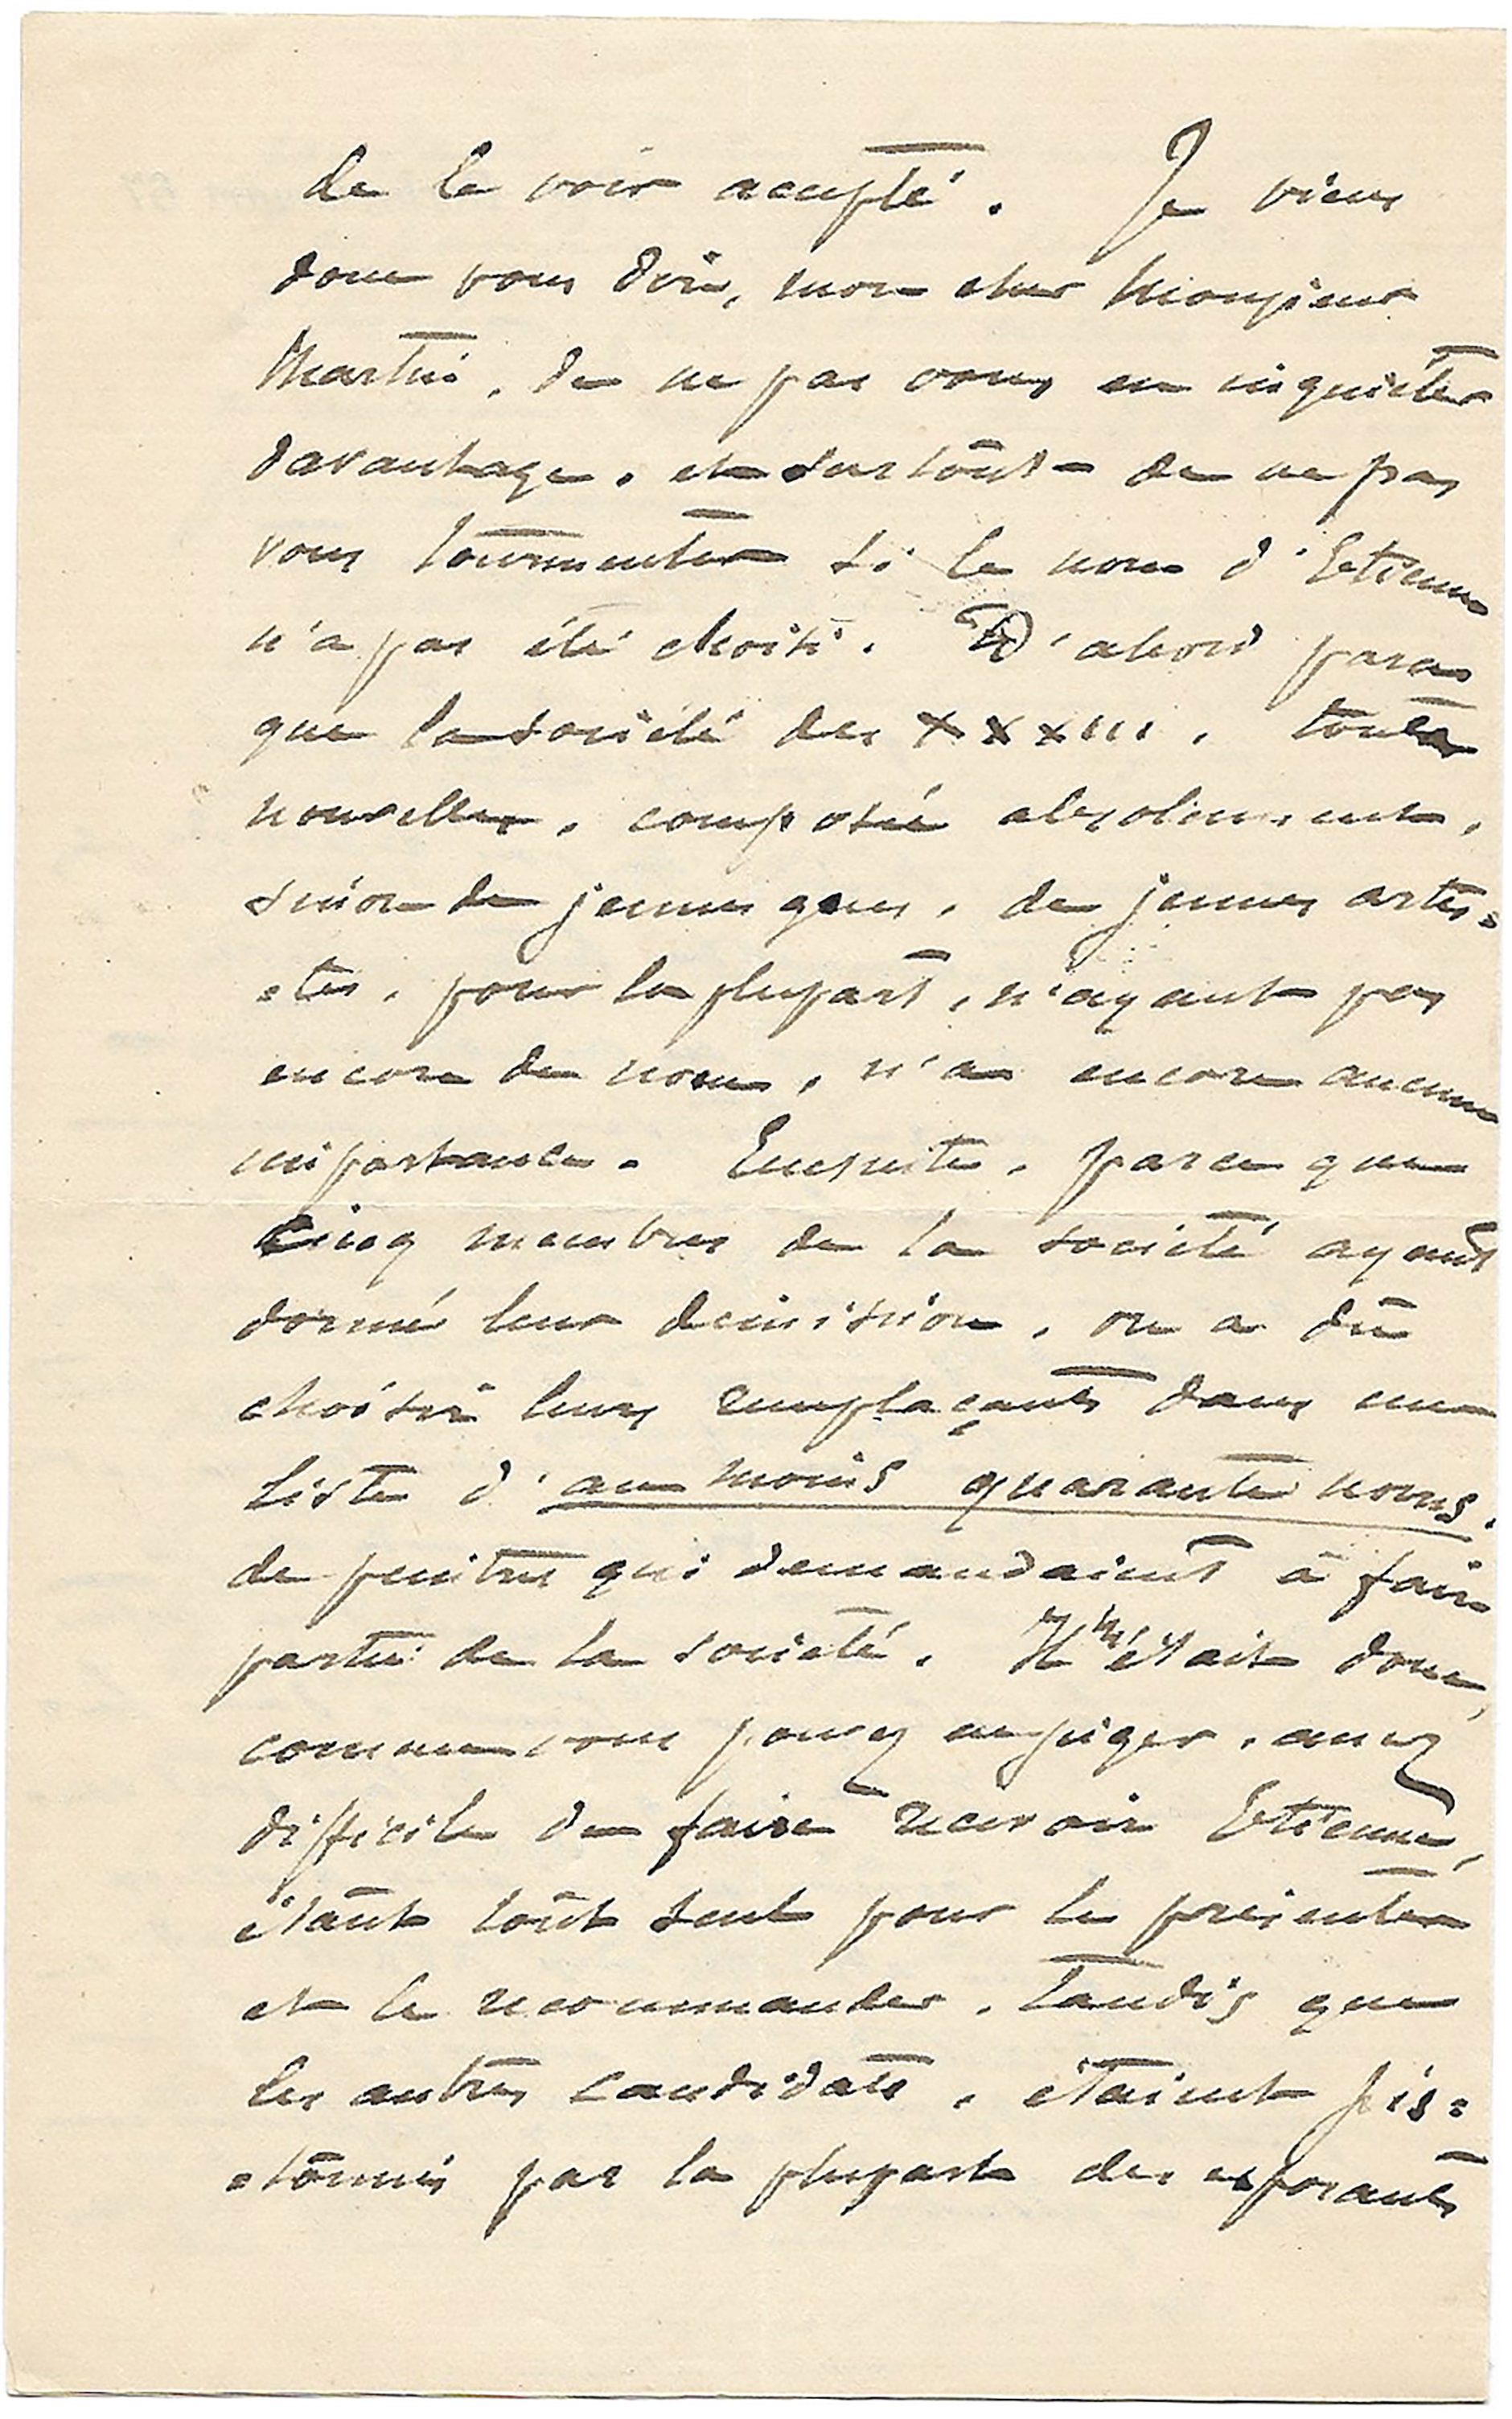 de le voir accepté. Je viens
donc vous dire, mon cher Monsieur
Martin, de ne pas vous en inquiéter
davantage, et surtout de ne pas
vous tourmenter si le nom d'Etienne
n'a pas été choisi. D'abord parce
que la société des XXXIII, toute
nouvelle, composée absolument,
sinon de jeunes gens, de jeunes artis=
=tes, pour la plupart, n'ayant pas
encore de nom, n'a encore aucune
importance. Ensuite, parce que
cinq membres de la société ayant
donné leur démission, on a dû
choisir leurs remplaçants dans une
liste d'au moins quarante noms,
de peintres qui demandaient à faire
partie de la société. Il m'était donc,
comme vous pouvez en juger, assez
difficile de faire recevoir Etienne,
étant tout seul pour le présenter
et le recommander, tandis que
les autres candidats, étaient pis=
=tonnés par la plupart des exposants